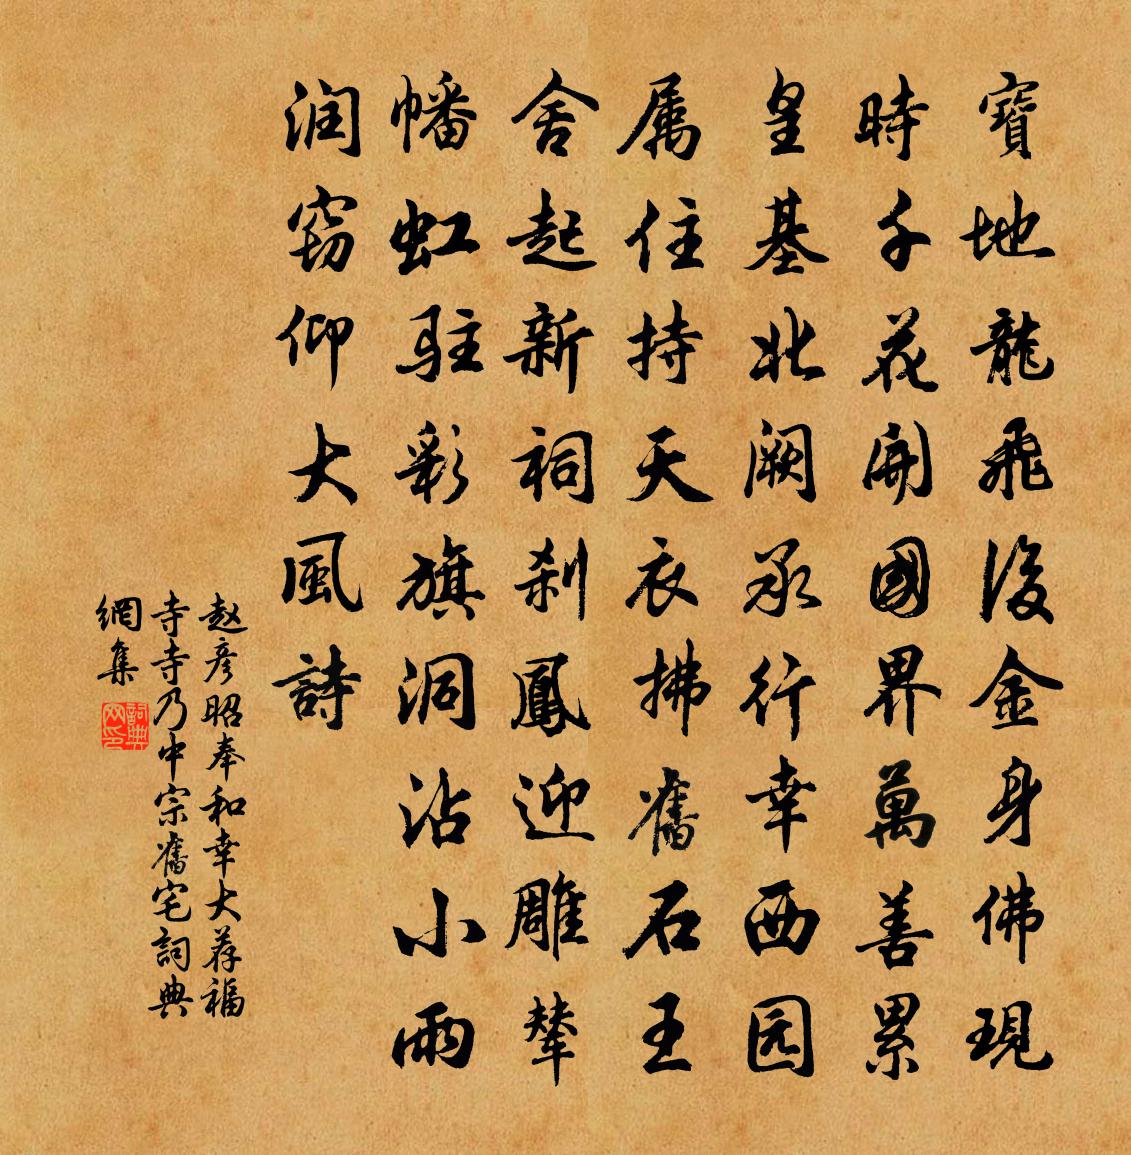 寶地龍飛後金身佛現
時千花開國界萬善累
皇基北阙承行幸西园
属住持天衣拂舊石王
舍起新祠刹鳳迎雕輦
幡虹駐彩旗洞沾小雨
润窈仰大風詩
赵彦昭奉和幸大荐福
寺寺乃中宗舊宅詞典
網集
詞典网印